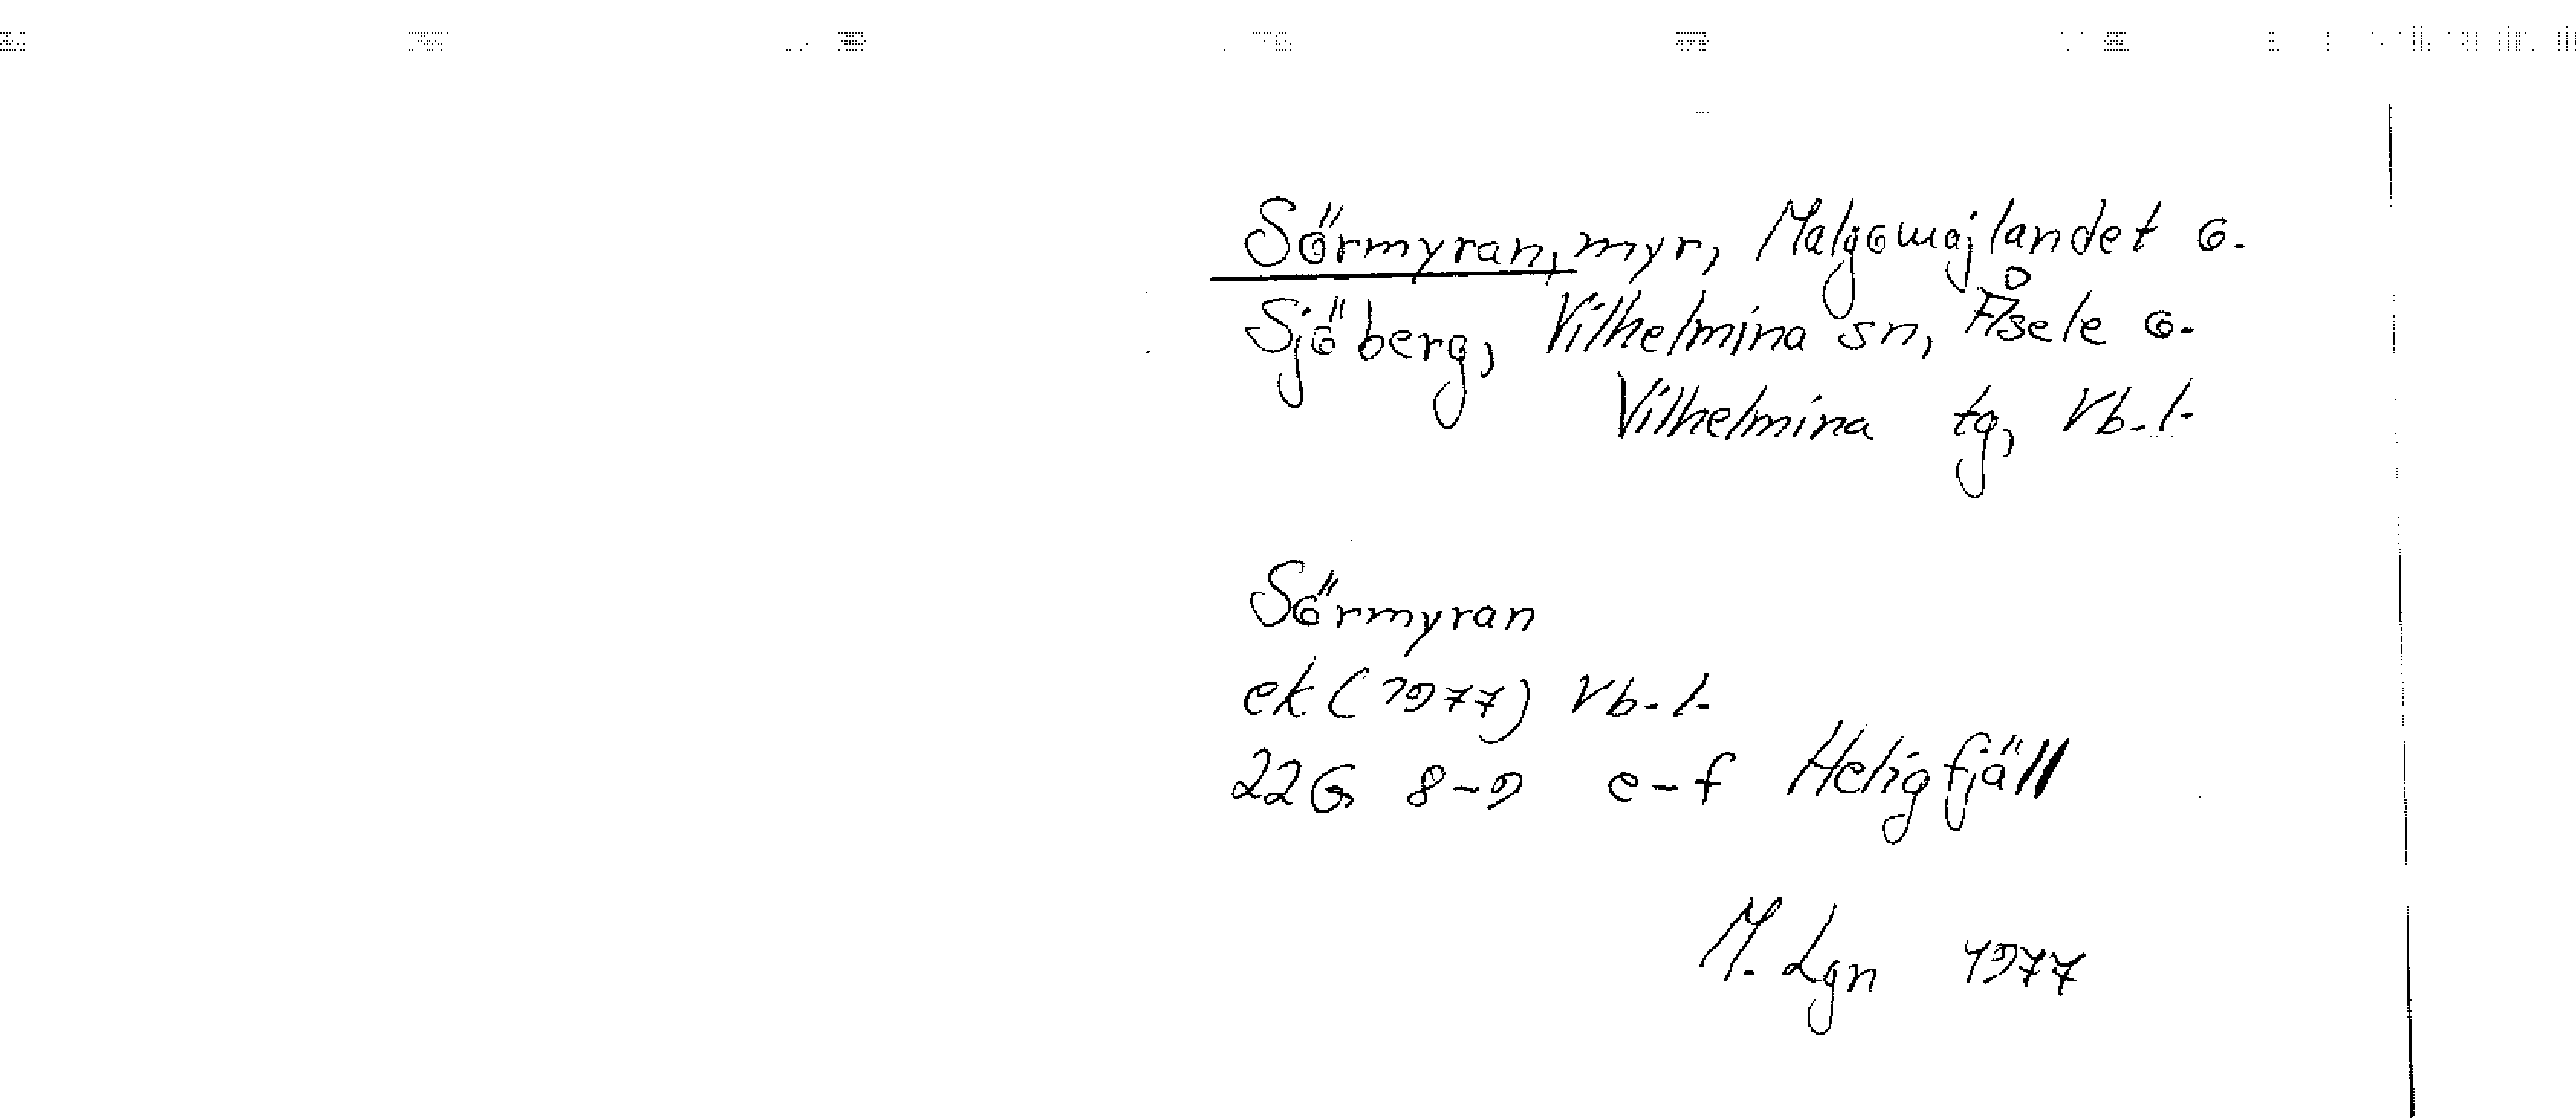 Sörmyran, myr, Malgomajlandet o.
Sjöberg, Vilhelmina sn, Åsele o.
Vilhelmina tg, Vb. l.
Sörmyran
ek (1977) Vb. l.
22G 8-9 e-f Heligfjäll
M. Lgn 1977